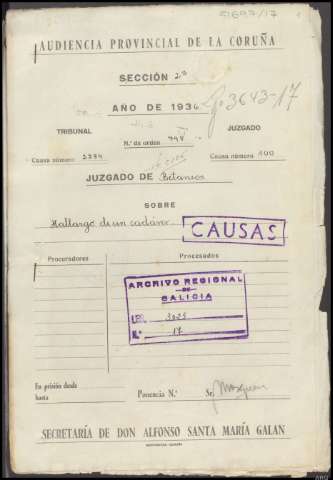 51697/17
AUDIENCIA PROVINCIAL DE LA CORUÑA
SECCIÓN 2ª
G-3643-17
AÑO DE 1936
TRIBUNAL
JUZGADO
N.º de orden 448
Causa número
Causa número 400
JUZGADO DE Betanzos
SOBRE
Hallazgo de un cadáver
CAUSAS
Procuradores
Procesados
ARCHIVO REGIONAL
DE
GALICIA
LEG. 3025
N.º 17
En prisión desde
hasta
Ponencia N.º
Sr.
SECRETARÍA DE DON ALFONSO SANTA MARÍA GALAN